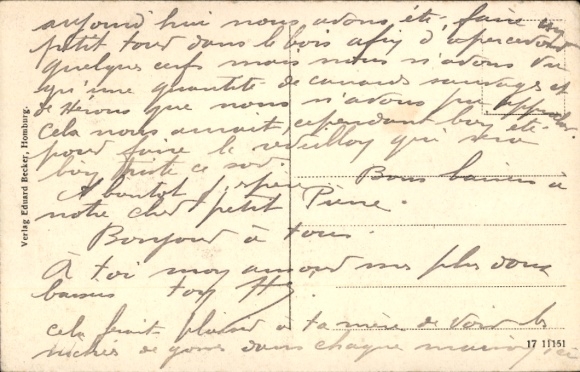 aujourd'hui nous avons été faire un
petit tour dans le bois afin d'apercevoir
quelques cerfs mais nous n'avons vu
qu'une quantité de canards sauvages et
de Hérons que nous n'avons pu approcher.
cela nous aurait, cependant bien été
pour faire le réveillon qui sera
bien triste ce soir.
A bientôt j'espère Bons baisers à
notre cher petit Pierre.
Bonjour à tous.
À toi mon amour mes plus doux
baisers ton
cela ferait plaisir à ta mère de voir les
niches de dans chaque ici
Verlag Eduard Becker, Homburg.
17 11151